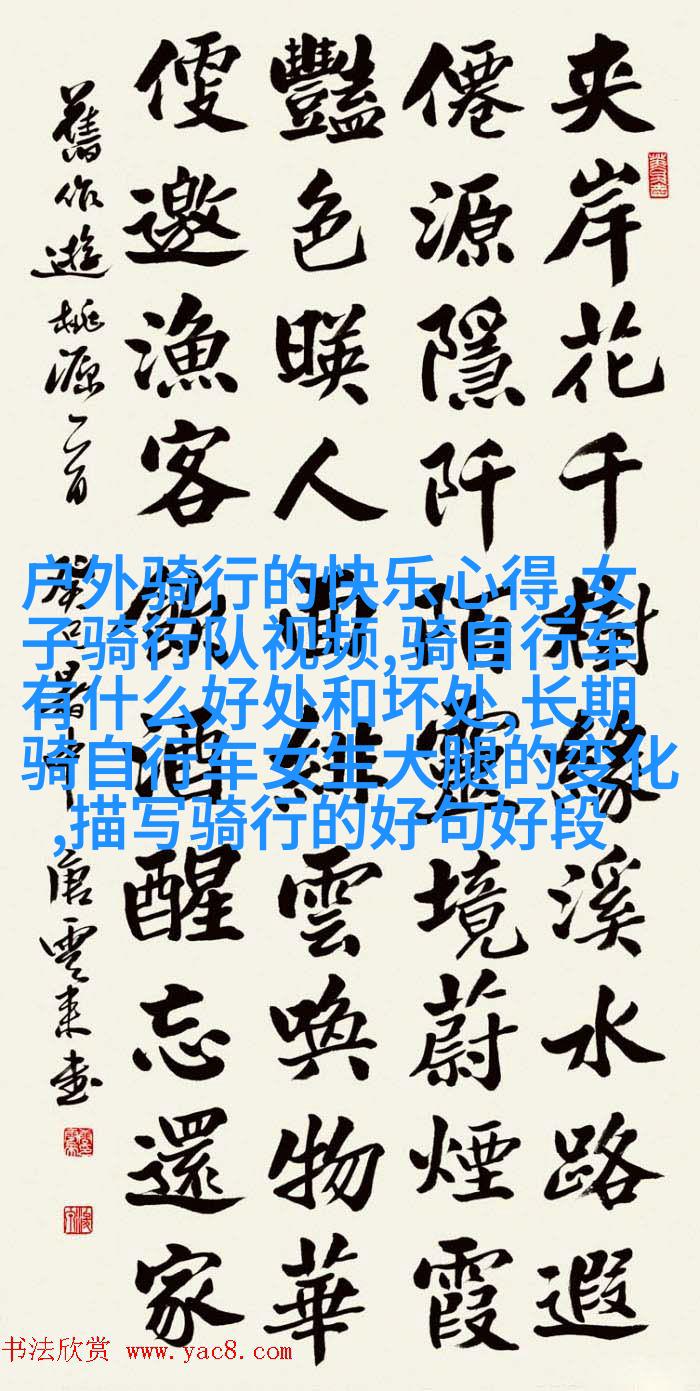 夾岸花千樹緣溪水路遐
僊源隱阡陌靈境蔚煙霞
豔色暎人緋雲喚物華
便邀漁客酒醒忘還家
舊作遊桃源二首 癸巳暑中 唐雲來書
户外骑行的快乐心得,女
子骑行队视频,骑自行车
有什么好处和坏处,长期
骑自行车女生大腿的变化
,描写骑行的好句好段
书法欣赏 www.yac8.com